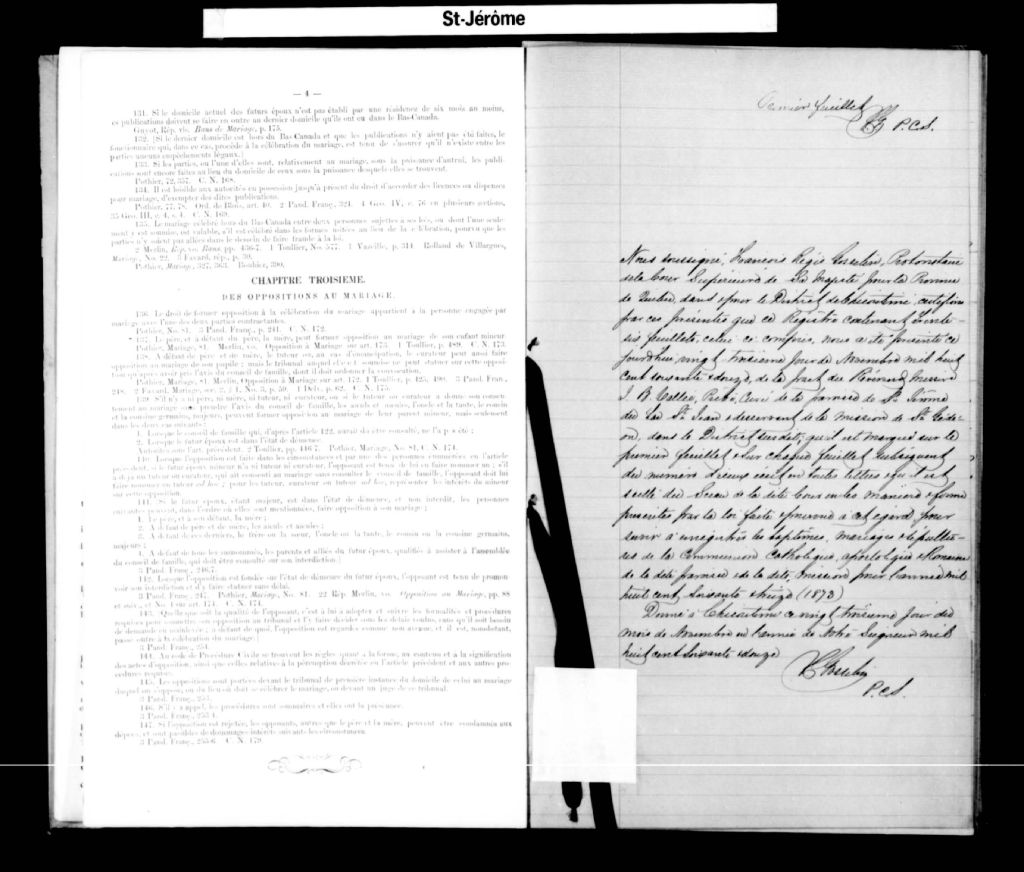 St-Jérôme
— 4 —
131. Si le domicile actuel des futurs époux n'est pas établi par une résidence de six mois au moins,
les publications doivent se faire en outre au dernier domicile qu'ils ont eu dans le Bas-Canada.
Guyot, Rép. vis. Bans de Mariage, p. 175.
132. [Si le dernier domicile est hors du Bas-Canada et que les publications n'y aient pas été faites, le
fonctionnaire qui, dans ce cas, procède à la célébration du mariage, est tenu de s'assurer qu'il n'existe entre les
parties aucuns empêchements légaux.]
133. Si les parties, ou l'une d'elles sont, relativement au mariage, sous la puissance d'autrui, les publi-
cations sont encore faites au lieu du domicile de ceux sous la puissance desquels elles se trouvent.
Pothier, 72, 357. C. N. 168.
134. Il est loisible aux autorités en possession jusqu'à présent du droit d'accorder des licences ou dispenses
pour mariage, d'exempter des dites publications.
Pothier, 77, 78. Ord. de Blois, art. 40. 2 Pand. Franç., 324. 4 Geo. IV, c. 76 en plusieurs sections,
35 Geo. III, c. 4, s. 4. C. N. 169.
135. Le mariage célébré hors du Bas-Canada entre deux personnes sujettes à ses lois, ou dont l'une seule-
ment y est soumise, est valable, s'il est célébré dans les formes usitées au lieu de la célébration, pourvu que les
parties n'y soient pas allées dans le dessein de faire fraude à la loi.
2 Merlin, Rép. vo. Bans, pp. 436-7. 1 Toullier, No. 577. 1 Vazeille, p. 314. Rolland de Villargues,
Mariage, No. 22. 3 Favard, rép., p. 39.
Pothier, Mariage, 327, 363. Bouhier, 390.
CHAPITRE TROISIEME.
DES OPPOSITIONS AU MARIAGE.
136. Le droit de former opposition à la célébration du mariage appartient à la personne engagée par
mariage avec l'une des deux parties contractantes.
Pothier, No. 81. 3 Pand. Franç., p. 241. C. N. 172.
137. Le père, et à défaut du père, la mère, peut former opposition au mariage de son enfant mineur.
Pothier, Mariage, 81. Merlin, vo. Opposition à Mariage sur art. 173. 1 Toullier, p. 489. C. N. 173.
138. A défaut de père et de mère, le tuteur ou, au cas d'émancipation, le curateur peut aussi faire
opposition au mariage de son pupille; mais le tribunal auquel elle est soumise ne peut statuer sur cette opposi-
tion qu'après avoir pris l'avis du conseil de famille, dont il doit ordonner la convocation.
Pothier, Mariage, 81. Merlin, Opposition à Mariage sur art. 172. 1 Toullier, p. 425, 490. 3 Pand. Fran.,
248. 2 Favard, Mariage, sec. 3, § 4, No. 3, p. 59. 1 Delv., p. 62. C. N. 175.
139. S'il n'y a ni père, ni mère, ni tuteur, ni curateur, ou si le tuteur ou curateur a donné son consen-
tement au mariage sans prendre l'avis du conseil de famille, les aïeuls et aïeules, l'oncle et la tante, le cousin
et la cousine germains, majeurs, peuvent former opposition au mariage de leur parent mineur, mais seulement
dans les deux cas suivants:
1. Lorsque le conseil de famille qui, d'après l'article 122, aurait dû être consulté, ne l'a pas été;
2. Lorsque le futur époux est dans l'état de démence.
Autorités sous l'art. précédent. 2 Toullier, pp. 446-7. Pothier, Mariage, No. 81, C. N. 174.
140. Lorsque l'opposition est faite dans les circonstances et par une des personnes énumérées en l'article
précédent, si le futur époux mineur n'a ni tuteur ni curateur, l'opposant est tenu de lui en faire nommer un; s'il
a déjà un tuteur ou curateur, qui ait consenti au mariage sans consulter le conseil de famille, l'opposant doit lui
faire nommer un tuteur ad hoc; pour les tuteur, curateur ou tuteur ad hoc, représenter les intérêts du mineur
sur cette opposition.
141. Si le futur époux, étant majeur, est dans l'état de démence, et non interdit, les personnes
suivantes peuvent, dans l'ordre où elles sont mentionnées, faire opposition à son mariage:
1. Le père, et à son défaut, la mère;
2. A défaut de père et de mère, les aïeuls et aïeules;
3. A défaut de ces derniers, le frère ou la sœur, l'oncle ou la tante, le cousin ou la cousine germains,
majeurs;
4. A défaut de tous les susnommés, les parents et alliés du futur époux, qualifiés à assister à l'assemblée
du conseil de famille, qui doit être consulté sur son interdiction.]
3 Pand. Franç., 246-7.
142. Lorsque l'opposition est fondée sur l'état de démence du futur époux, l'opposant est tenu de promou-
voir son interdiction et d'y faire statuer sans délai.
3 Pand. Franç., 247. Pothier, Mariage, No. 81. 22 Rép. Merlin, vo. Opposition au Mariage, pp. 88
et suiv., et No. 4 sur art. 174. C. N. 174.
143. Quelle que soit la qualité de l'opposant, c'est à lui à adopter et suivre les formalités et procédures
requises pour soumettre son opposition au tribunal et l'y faire décider sous les délais voulus, sans qu'il soit besoin
de demande en mainlevée; à défaut de quoi, l'opposition est regardée comme non avenue, et il est, nonobstant,
passé outre à la célébration du mariage.
3 Pand. Franç., 254.
144. Au code de Procédure Civile se trouvent les règles quant à la forme, au contenu et à la signification
des actes d'opposition, ainsi que celles relatives à la péremption décrétée en l'article précédent et aux autres pro-
cédures requises.
145. Les oppositions sont portées devant le tribunal de première instance du domicile de celui au mariage
duquel on s'oppose, ou du lieu où doit se célébrer le mariage, ou devant un juge de ce tribunal.
3 Pand. Franç., 253.
146. S'il y a appel, les procédures sont sommaires et elles ont la préséance.
3 Pand. Franç., 253-4.
147. Si l'opposition est rejetée, les opposants, autres que le père et la mère, peuvent être condamnés aux
dépens, et sont passibles de dommages-intérêts suivant les circonstances.
3 Pand. Franç., 255-6. C. N. 179.
Premier feuillet
P.C.S.
Nous soussigné, Francois Régis Gosselin, Protonotaire
de la Cour Supérieure de Sa Majesté pour la Province
de Quebec, dans & pour le District de Chicoutimi, certifions
par ces présentes que ce Registre contenant trente-
six feuillets, celui ci compris, nous a été présenté ce
jourd'hui vingt troisieme jour de Novembre mil huit
cent soixante & douze, de la part du Révérend Messire
Ptre, Curé de la paroisse de St. Jérome
du Lac St. Jean & desservant de la mission de St. Gédé-
on, dans le District susdit; qu'il est marqué sur le
premier feuillet & sur chaque feuillet subséquent
du numéro d'iceux écrit en toutes lettres & qu'il est
scellé du Sceau de la dite Cour en les manière & forme
prescrites par la loi faite & pourvue à cet égard, pour
servir à enregistrer les baptêmes, mariages & sépultu-
res de la Communion Catholique, apostolique & Romaine
de la dite paroisse & de la dite mission pour l'année mil
huit cent soixante & treize (1873)
Donné à Chicoutimi ce vingt troisieme jour du
mois de Novembre en l'année de Notre Seigneur mil
huit cent soixante & douze
P.C.S.